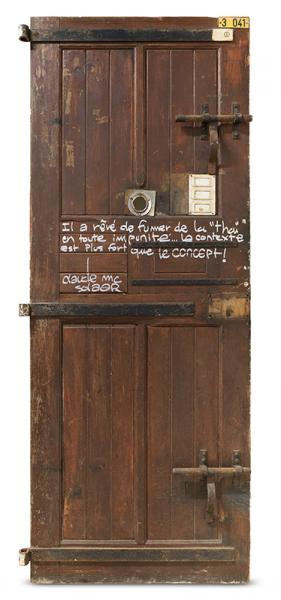 3 041
Il a rêvé de fumer de la "thaï"
en toute impunité... le contexte
est plus fort que le CONCEPT!
claude mc
solaar